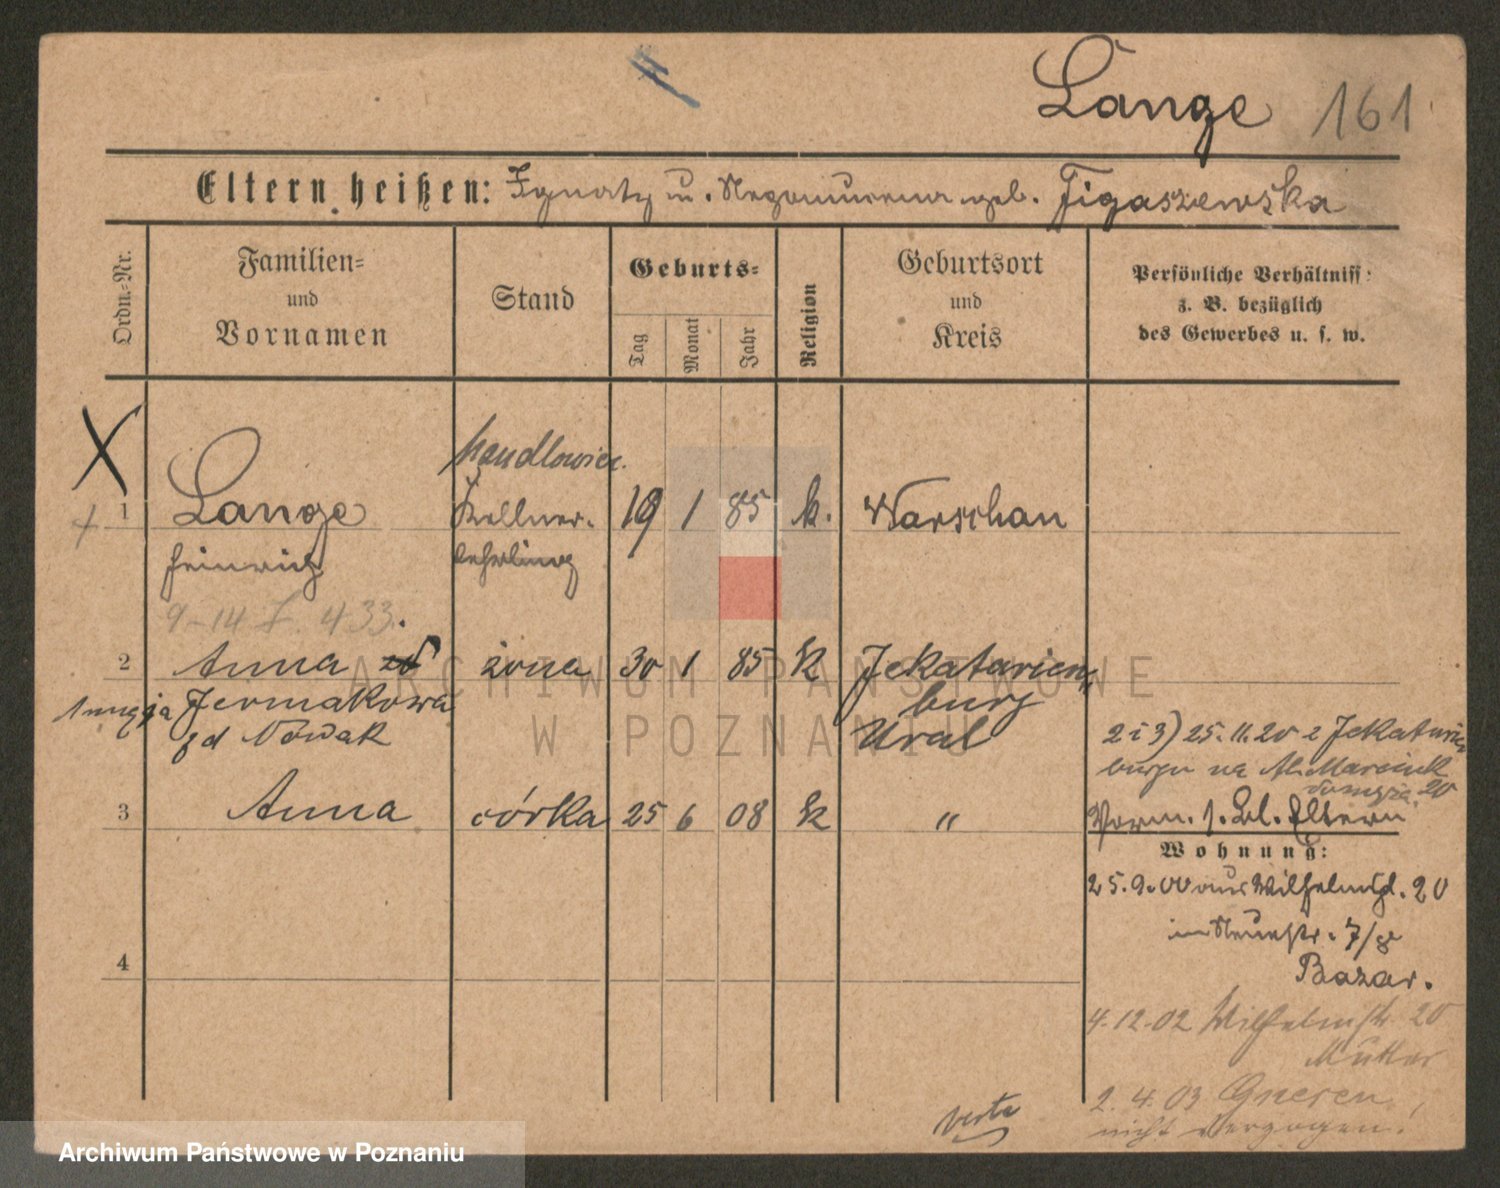 Lange 161
Eltern heißen: Ignatz u. geb. Figaszewska
Ordn.-Nr.
Familien-
und
Vornamen
Stand
Geburts-
Tag
Monat
Jahr
Religion
Geburtsort
und
Kreis
Persönliche Verhältniss:
z. B. bezüglich
des Gewerbes u. s. w.
handlowiec
1 Lange Kellner- 19 1 85 k. Warschau
Heinrich lehrling
9-14 F. 433.
2 Anna żona 30 1 85 k Jekatarien
Jermakowa burg
fd Nowak Ural
2 i 3) 25.11.20 z Jekaturien
burgu na Al. Marcink
20
3 Anna córka 25 6 08 k "
Vorm. s. Bl. Eltern
Wohnung:
25.9.00 aus Wilhelmspl. 20
in Neuestr. 7/8
4
Bazar.
4.12.02 Wilhelmstr 20
Mutter
2.4.03 Gnesen
nicht verzogen!
verte
ARCHIWUM PAŃSTWOWE
W POZNANIU
Archiwum Państwowe w Poznaniu